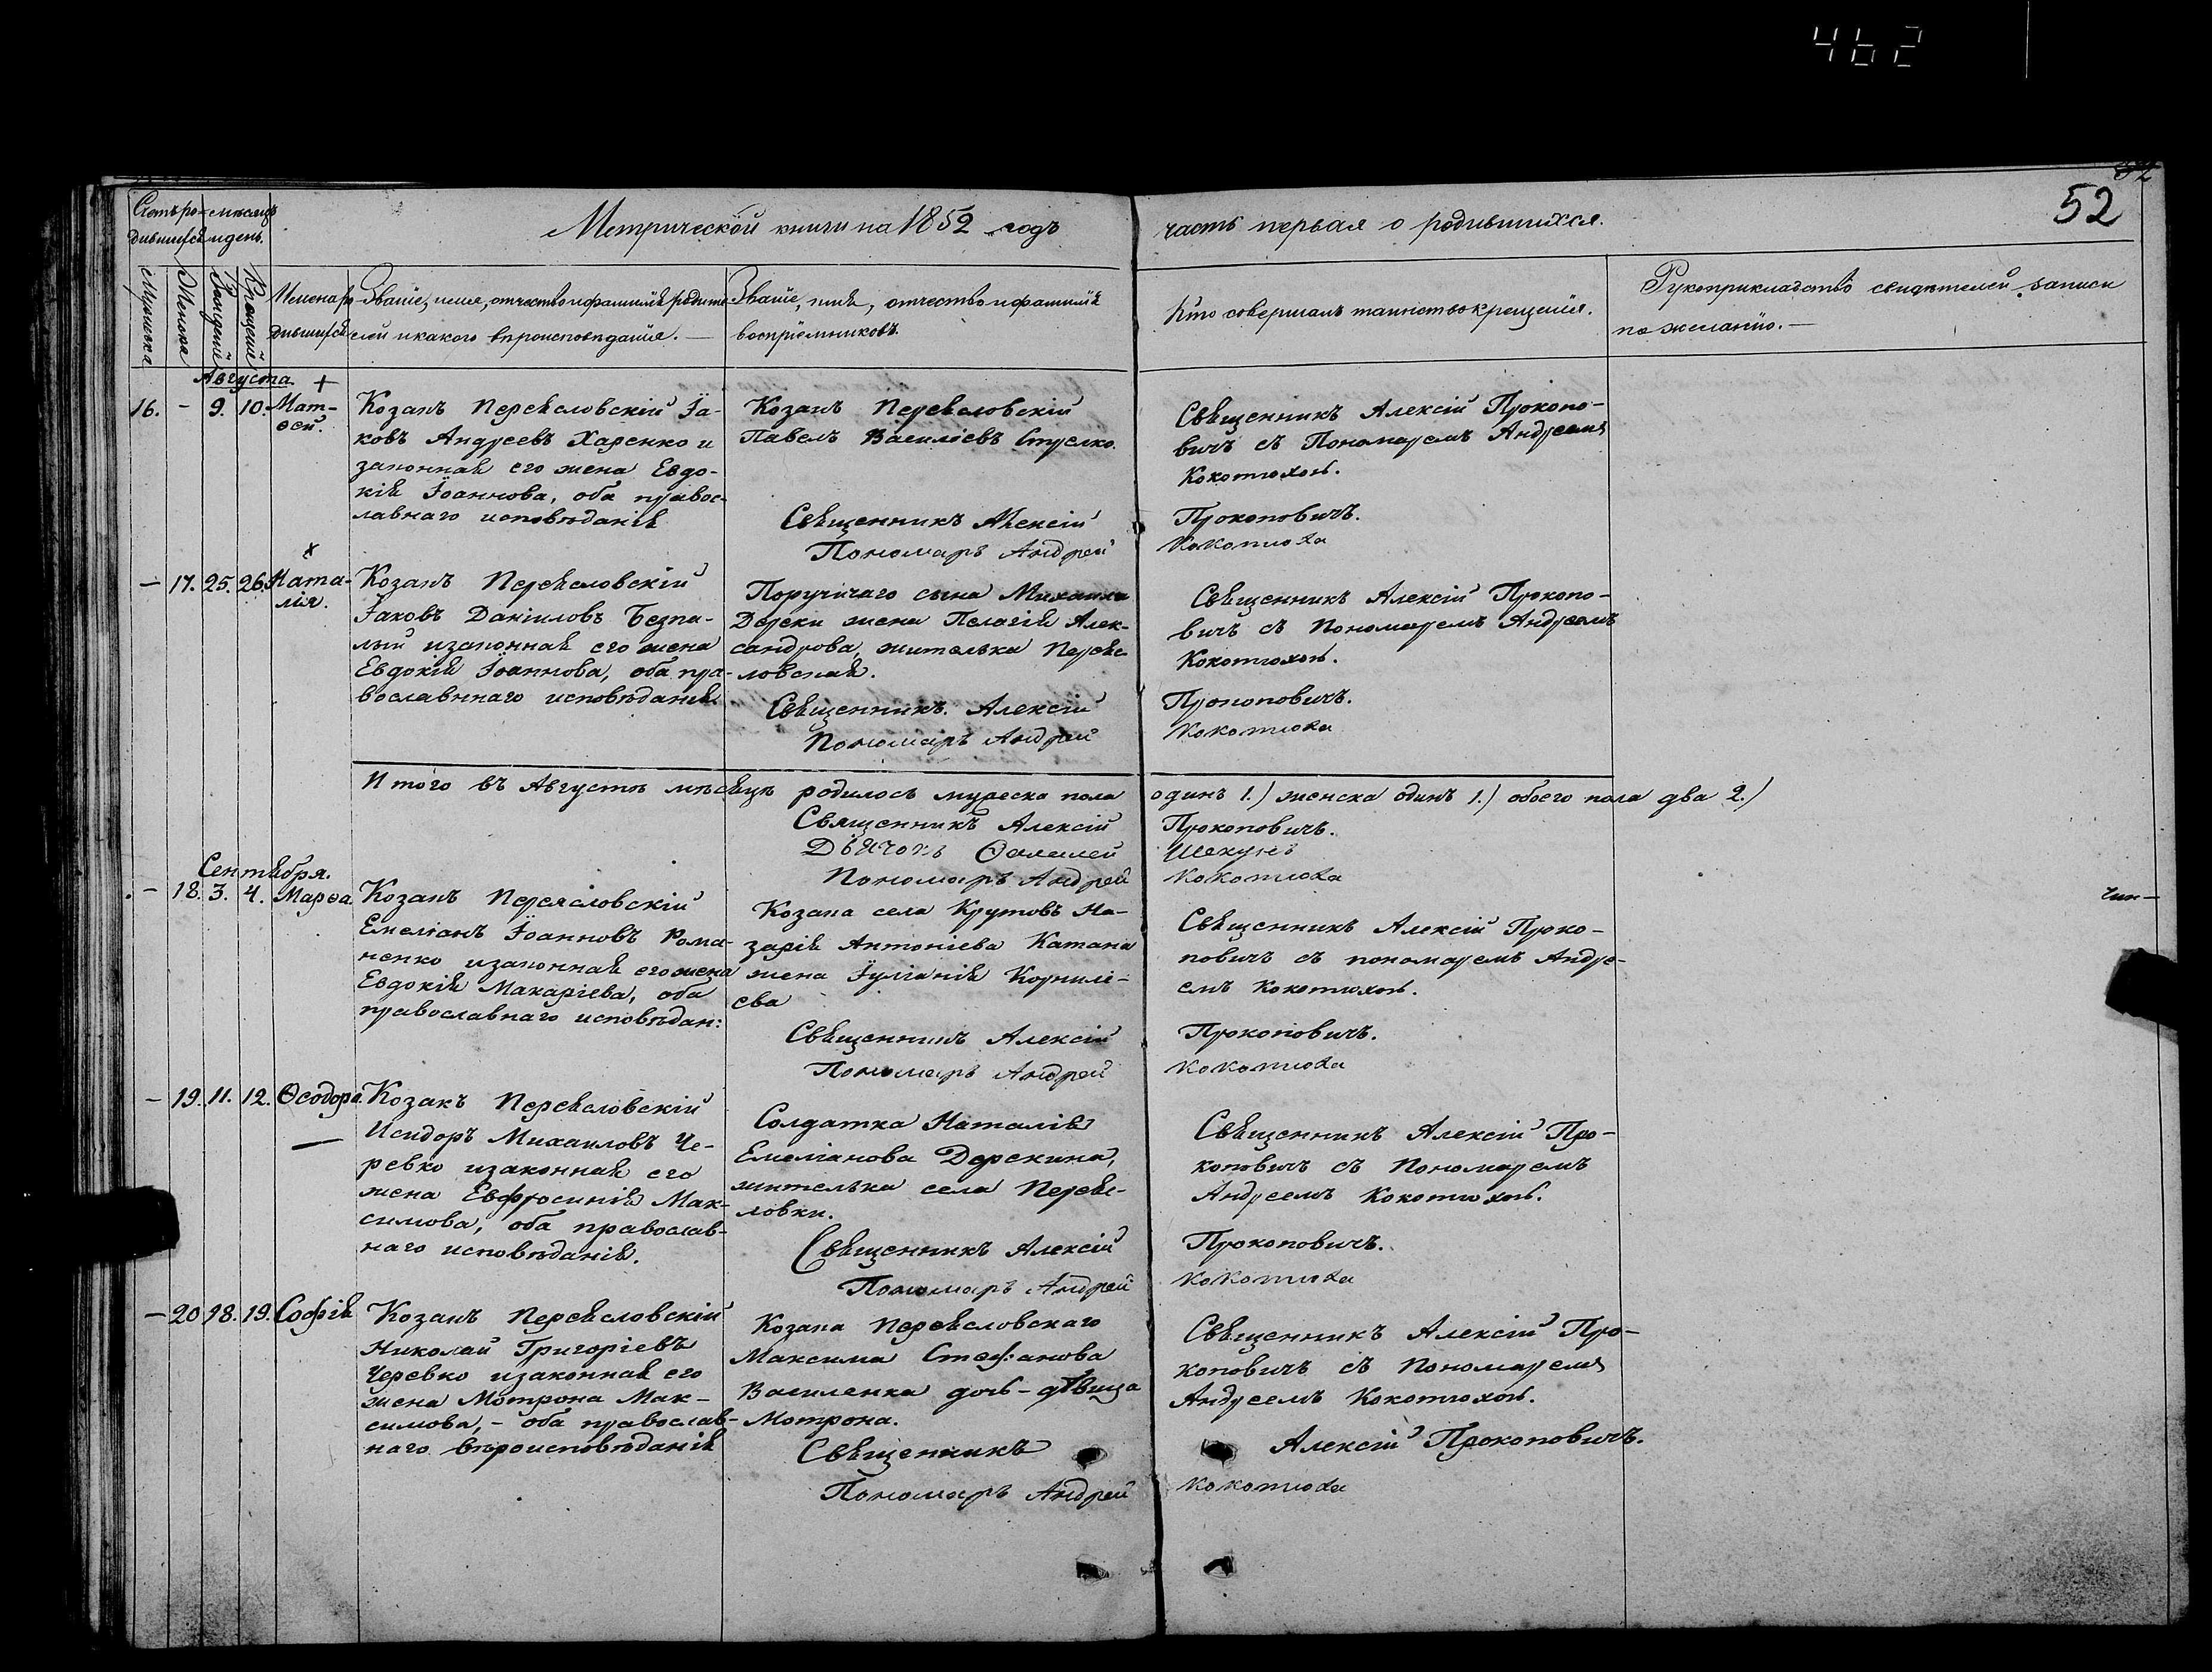 462
52
52
Счетъ ро- мѣсяцъ
дившихся и день.
Метрической книги на 1852 годъ
часть первая о родившихся.
Мужеска
Женска
Рожденія
Крещенія
Имена ро
дившихся
Званіе, имя, отчество и фамилія родите
лей и какого вѣроисповѣданія. —
Званіе, имя, отчество и фамилія
воспріемниковъ.
Кто совершалъ таинство крещенія.
Рукоприкладство свидѣтелей записи
по желанію. —
Августа +
16. - 9. 10. Мат-
ѳей.
Козакъ Переяловскій Іа-
ковъ Андреевъ Харенко и
законная его жена Евдо-
кія Іоаннова, оба правос-
лавнаго исповѣданія
Козакъ Переяловскій
Павелъ Василіевъ
Священникъ Алексій
Пономарь Андрей
Священникъ Алексій Прокопо-
вичъ съ Пономаремъ Андреемъ
Кокотюхою.
Прокоповичъ.
Кокотюха
x
— 17. 25. 26. Ната-
лія.
Козакъ Переяловскій
Іаковъ Даніиловъ Безпа-
лый изаконная его жена
Евдокія Іоаннова, оба пра-
вославннаго исповѣданія
сына Михаила
Дереки жена Пелагія Алек-
сандрова, жителька Переяс-
ловская.
Священникъ. Алексій
Пономарь Андрей
Священникъ Алексій Прокопо-
вичъ съ Пономаремъ Андреемъ
Кокотюхою.
Прокоповичъ.
Кокотюха
Итого въ Августѣ мѣсяцѣ родилось мужеска пола
одинъ 1.) женска одинъ 1.) обоего пола два 2.)
Священникъ Алексій
Дьячокъ Ѳалалей
Пономарь Андрей
Прокоповичъ.
Шекунъ
Кокотюха
Сентября.
- 18. 3. 4. Марѳа
Козакъ Переясловскій
Емеліанъ Іоанновъ Рома-
ненко изаконная его жена
Евдокія Макаріева, оба
православнаго исповѣдан:
Козака села Крутовъ На-
зарія Антоніева Катана
жена Іуліанія Корнилі-
ева
Священникъ Алексій
Пономарь Андрей
Священникъ Алексій Проко-
повичъ съ пономаремъ Андре-
емъ Кокотюхою.
Прокоповичъ.
Кокотюха
- 19. 11. 12. Ѳеодора
—
Козакъ Переясловскій
Исидоръ Михаиловъ Че-
ревко изаконная его
жена Евфросинія Мак-
симова, оба православ-
наго исповѣданія.
Солдатка Наталія
Емеліанова Дерекина,
жителька села Переяс-
ловки.
Священникъ Алексій
Пономарь Андрей
Священникъ Алексій Про-
коповичъ съ Пономаремъ
Андреемъ Кокотюхою.
Прокоповичъ.
Кокотюха
— 20 18. 19. Софія
Козакъ Переясловскій
Николай Григоріевъ
Черевко изаконная его
жена Мотрона Мак-
симова, - оба православ-
наго вѣроисповѣданія
Козака Переясловскаго
Максима Стефанова
Василенка дочь - дѣвица
Мотрона.
Священникъ
Пономарь Андрей
Священникъ Алексій Про-
коповичъ съ Пономаремъ
Андреемъ Кокотюхою.
Алексій Прокоповичъ.
Кокотюха